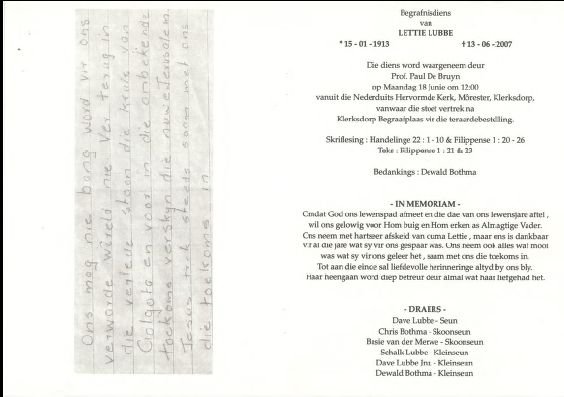 Ons mag nie bang word vir ons
verwarde wêreld nie Ver terug in
die verlede staan die kruis van
Golgota en voor in die onbekende
toekoms verskyn die nuwe Jerusalem.
Jesus trek steeds saam met ons
die toekoms in
Begrafnisdiens
van
LETTIE LUBBE
* 15 - 01 - 1913 † 13 - 06 - 2007
Die diens word waargeneem deur
Prof. Paul De Bruyn
op Maandag 18 Junie om 12:00
vanuit die Nederduits Hervormde Kerk, Môrester, Klerksdorp,
vanwaar die stoet vertrek na
Klerksdorp Begraafplaas vir die teraardebestelling.
Skriflesing : Handelinge 22 : 1-10 & Filippense 1 : 20 - 26
Teks : Filippense 1 : 21 & 23
Bedankings : Dewald Bothma
- IN MEMORIAM -
Omdat God ons lewenspad afmeet en die dae van ons lewensjare aftel ,
wil ons gelowig voor Hom buig en Hom erken as Almagtige Vader.
Ons neem met hartseer afskeid van ouma Lettie , maar ons is dankbaar
vir al die jare wat sy vir ons gespaar was. Ons neem ook alles wat mooi
was wat sy vir ons geleer het , saam met ons die toekoms in.
Tot aan die einde sal liefdevolle herinneringe altyd by ons bly.
Haar heengaan word diep betreur deur almal wat haar liefgehad het.
- DRAERS -
Dave Lubbe - Seun
Chris Bothma - Skoonseun
Basie van der Merwe - Skoonseun
Schalk Lubbe - Kleinseun
Dave Lubbe Jnr. - Kleinseun
Dewald Bothma - Kleinseun